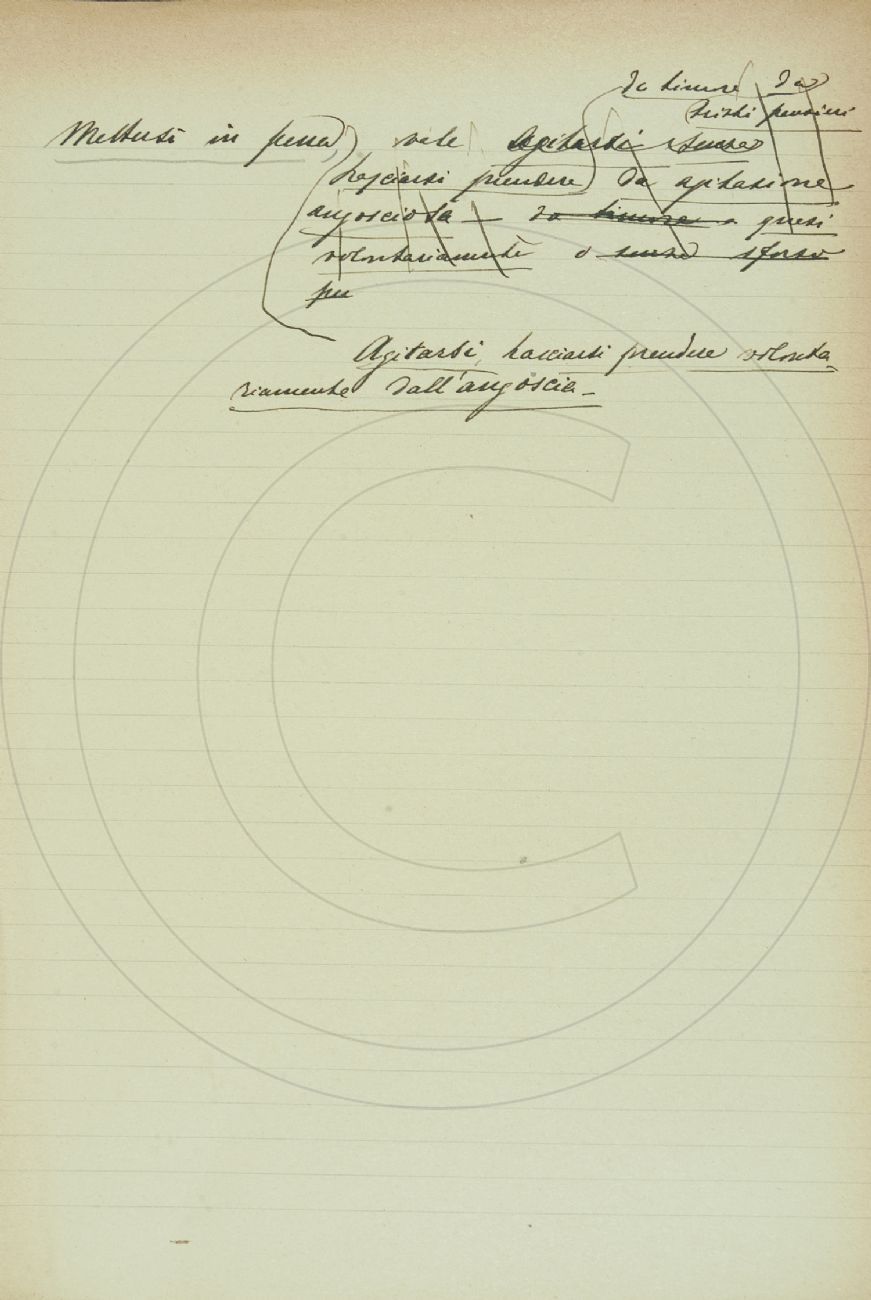 da timore da
tristi pensieri
Mettersi in pena, vale Agitarsi senza
Lasciarsi prendere da agitazione
angosciosa — da timore e quasi
volontariamente o senza sforzo
per
Agitarsi, Lasciarsi prendere volonta
riamente dall'angoscia.